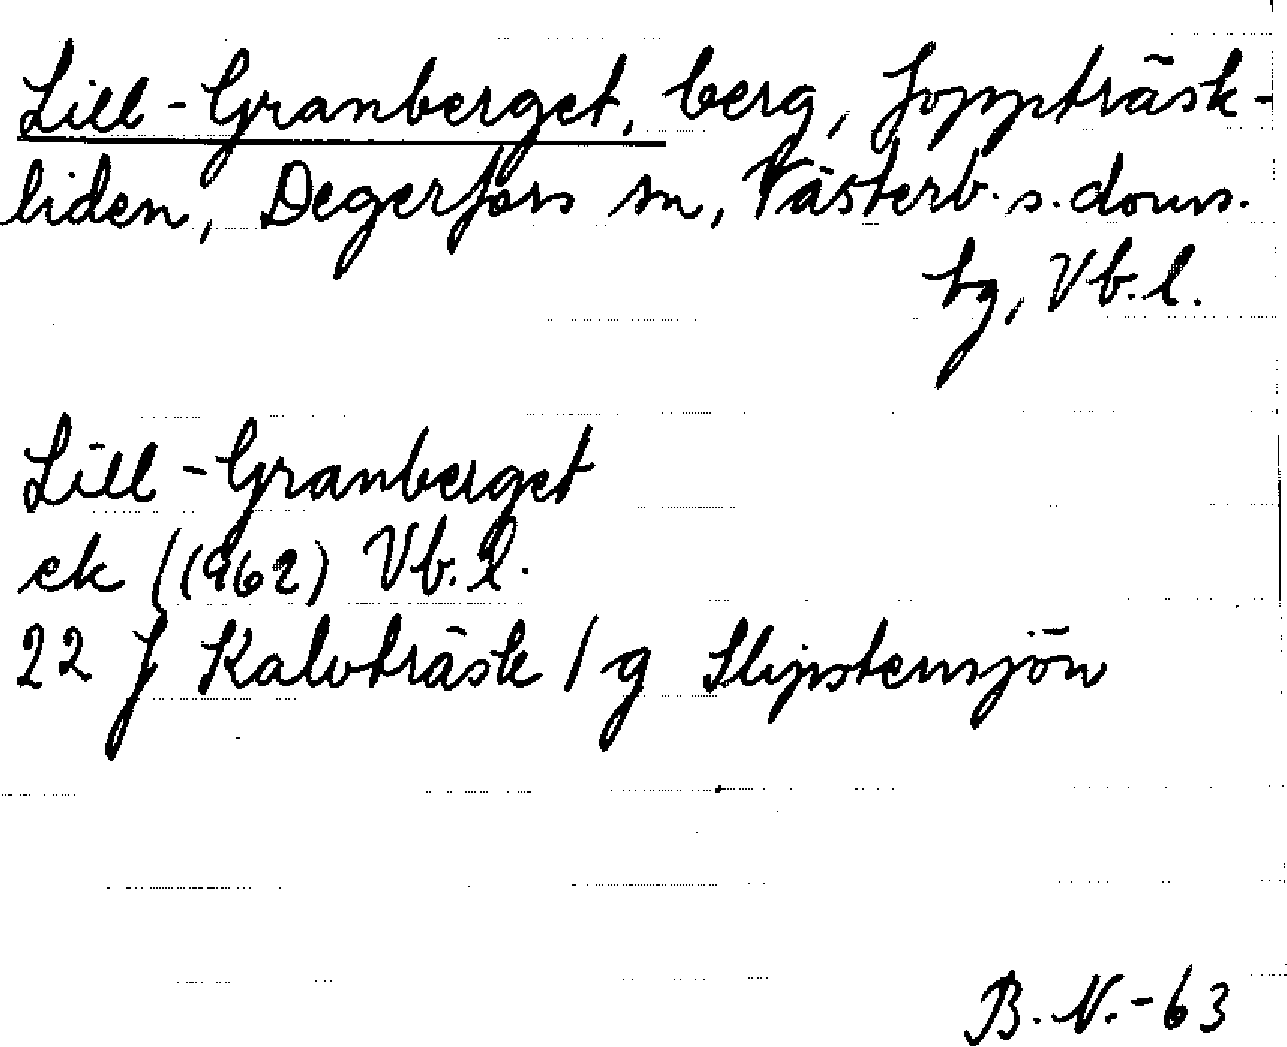 Lill-Granberget, berg, Joppträsk-
liden, Degerfors sn, Västerb. s. doms.
hg, Vb. l.
Lill-Granberget
ek (1962) Vb. l.
22 J Kalvträsk / g Slipstensjön
B. N. -63